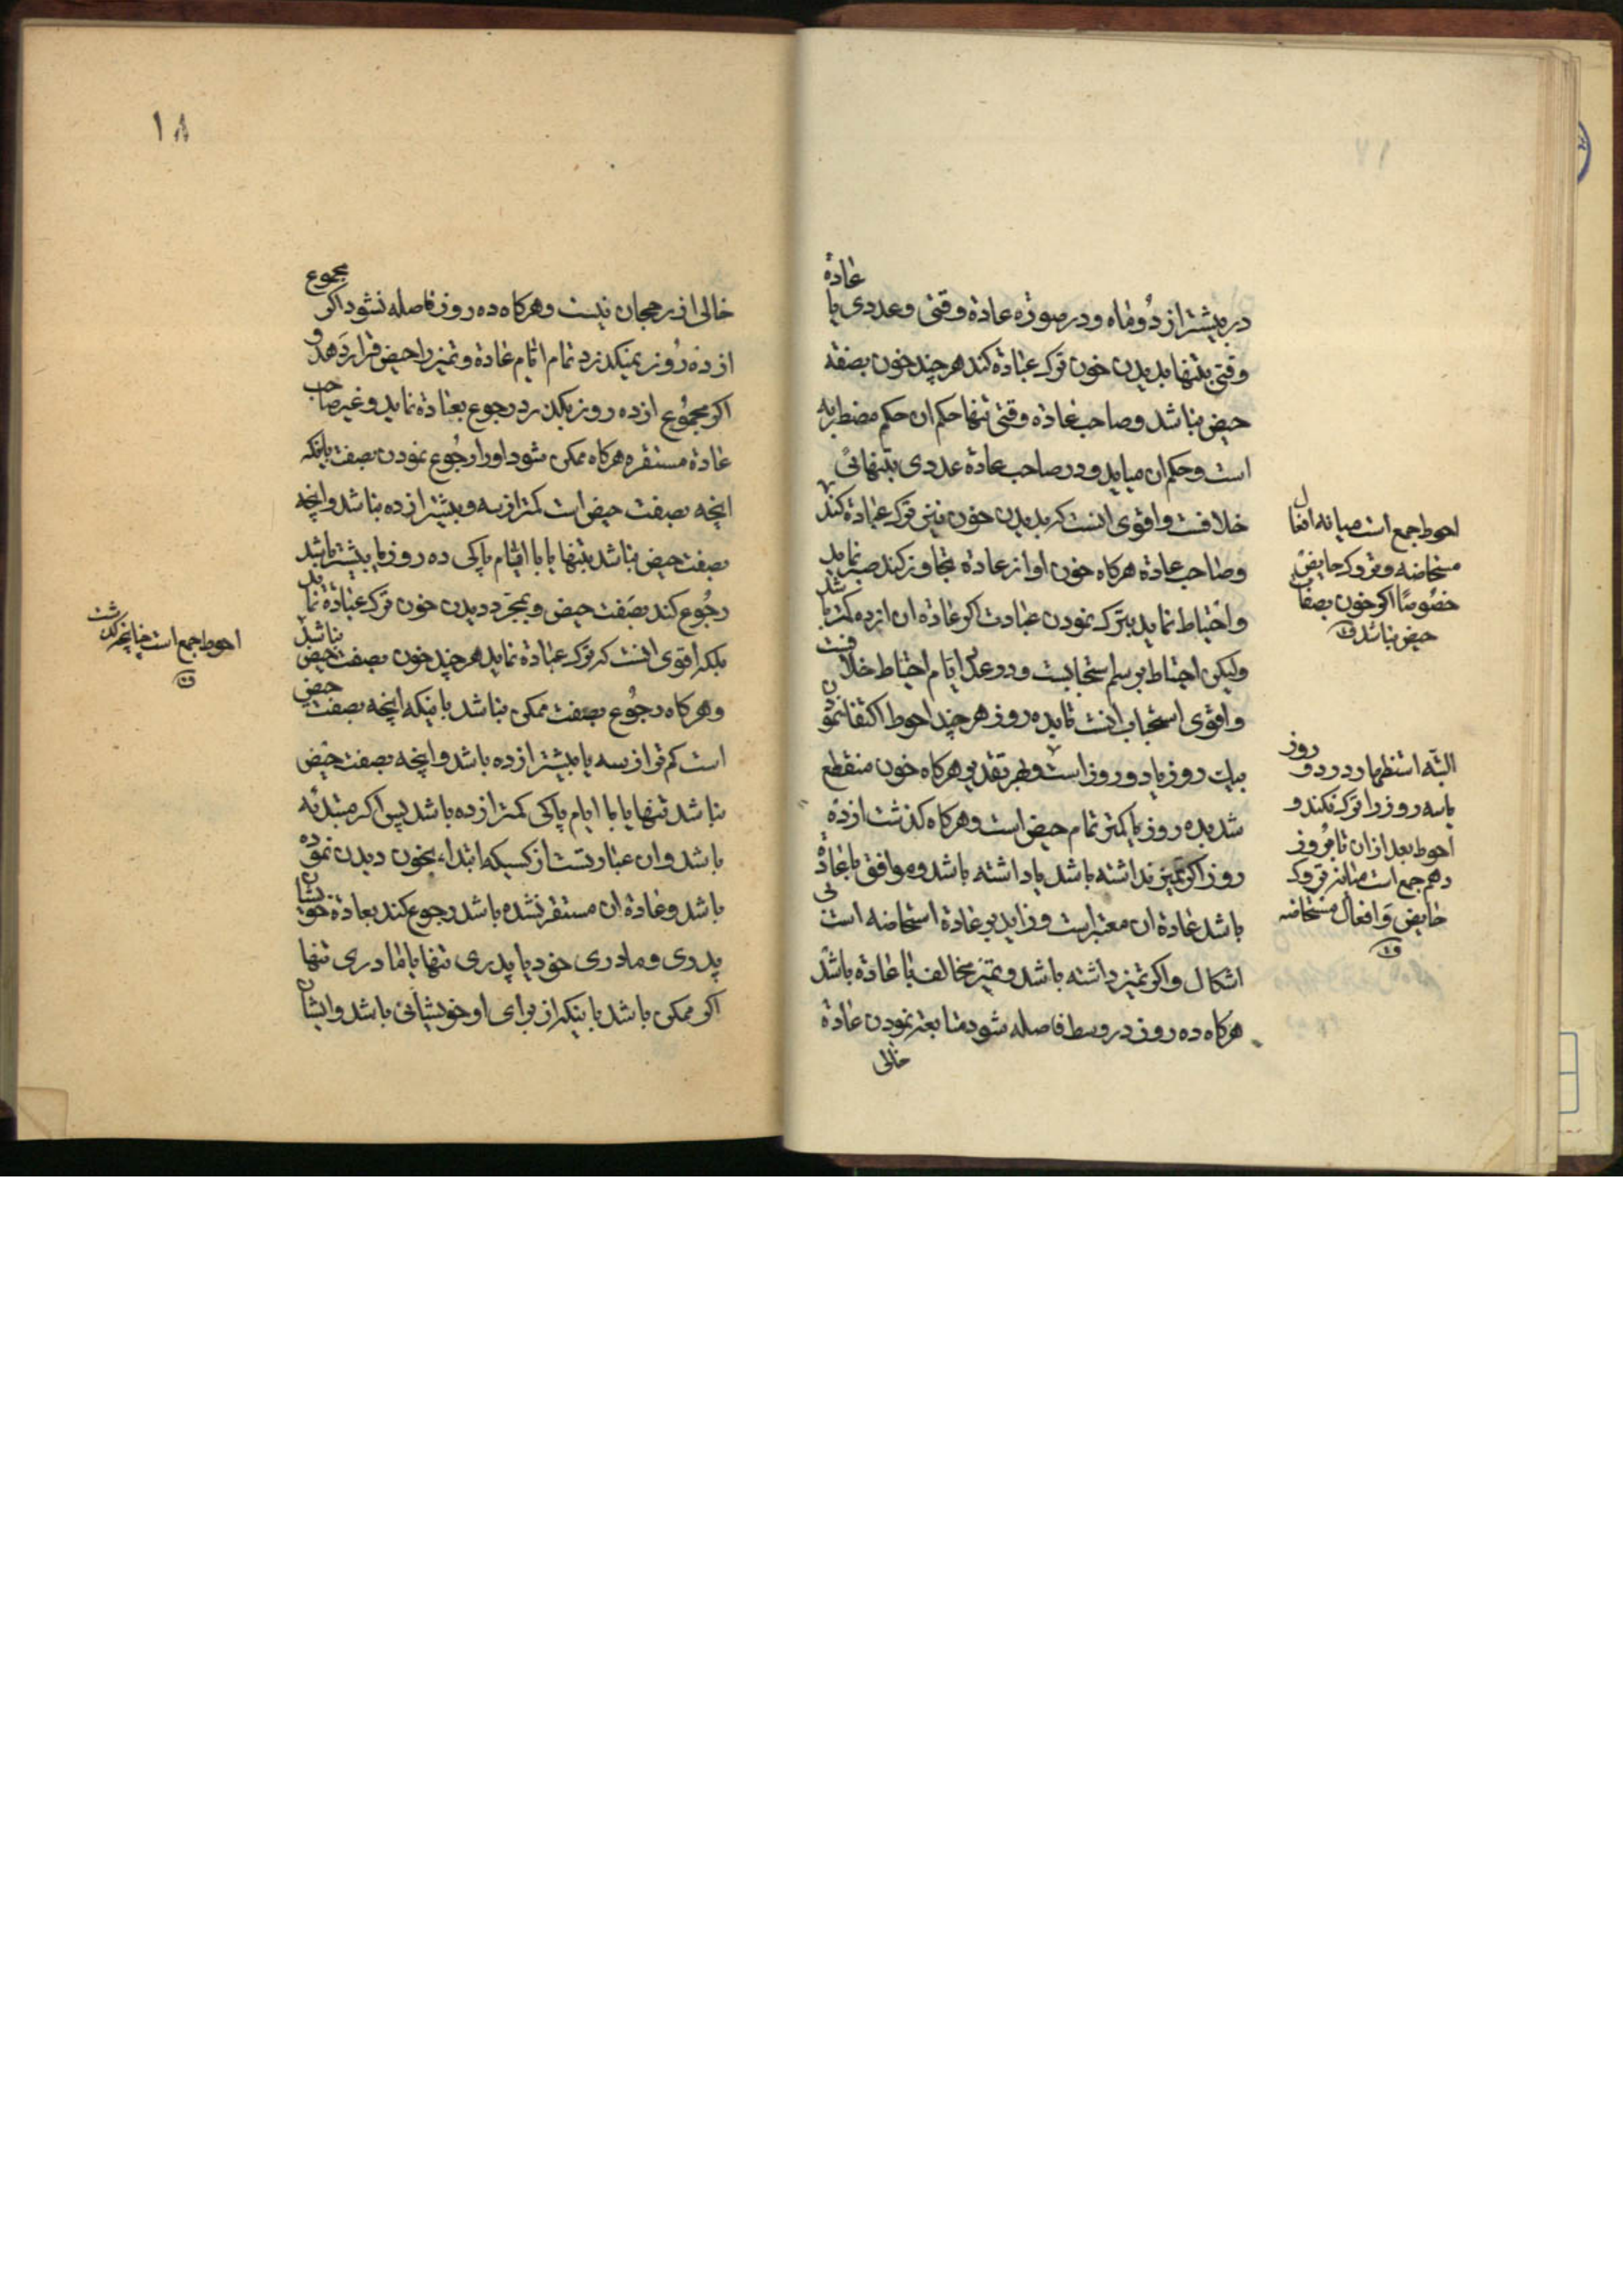 در بیشتر از دو ماه و در صورة عادة وقتی و عددی یا عادة
وقتی بتنها بدیدن خون ترک عبادة کند هر چند خون بصفة
حیض نباشد و صاحب عادة وقتی تنها حکم ان حکم مضطربه
است و حکم ان میاید و در صاحب عادة عددی بتنهائی
خلافست و اقوی انست که بدیدن خون نیز ترک عبادة کند
و صاحب عادة هرکاه خون او از عادة تجاوز کند صبر نماید
و احتیاط نماید بترک نمودن عبادت اکر عادة ان از ده کمتر باشد
ولیکن احتیاط برسم استحبابست و در عدد ایام احتیاط خلافست
و اقوی استحباب انست تا بده روز هر چند احوط اکتفا نمودن
بیک روز یا دو روز است و بهر تقدیر هرکاه خون منقطع
شد بده روز یا کمتر تمام حیض است و هرکاه کذشت از ده
روز اکر تمیز نداشته باشد یا داشته باشد و موافق با عادة
باشد عادة ان معتبر است و زاید بر عادة استحاضه است بی
اشکال و اکر تمیز داشته باشد و تمیز مخالف با عادة باشد
هرکاه ده روز در وسط فاصله شود متابعة نمودن عادة
خالی
احوط جمع است میانه افعال
مستحاضه و تروک حایض
خصوصا اکر خون بصفات
حیض نباشد
البته استظهار در دو روز
یا سه روز را ترک نکند و
احوط بعد از ان تا روز
دهم جمع است میانه تروک
حایض و افعال مستحاضه
١٨
خالی از رجحان نیست و هرکاه ده روز فاصله نشود اکر مجموع
از ده روز نمیکذرد تمام ایام عادة و تمیز را حیض قرار دهد و
اکر مجموع از ده روز بکذرد رجوع بعادة نماید و غیر صاحب
عادة مستقره هرکاه ممکن شود او را رجوع نمودن بصفت باینکه
انچه بصفت حیض است کمتر از سه و بیشتر از ده نباشد و انچه
بصفت حیض نباشد بتنها یا با ایام پاکی ده روز یا بیشتر باشد
رجوع کند بصفت حیض و بمجرد دیدن خون ترک عبادة نماید
بلکه اقوی انست که ترک عبادة نماید هر چند خون بصفت حیض نباشد
و هرکاه رجوع بصفت ممکن نباشد باینکه انچه بصفت حیض
است کم تر از سه یا بیشتر از ده باشد و انچه بصفت حیض
نباشد تنها یا با ایام پاکی کمتر از ده باشد پس اکر مبتدئه
باشد و ان عبارتست از کسیکه ابتداء بخون دیدن نموده
باشد و عادة ان مستقر نشده باشد رجوع کند بعادة خویشان
پدری و مادری خود یا پدری تنها یا مادری تنها
اکر ممکن باشد باینکه از برای او خویشانی باشد و ایشان
احوط جمع است چنانچه کذشت